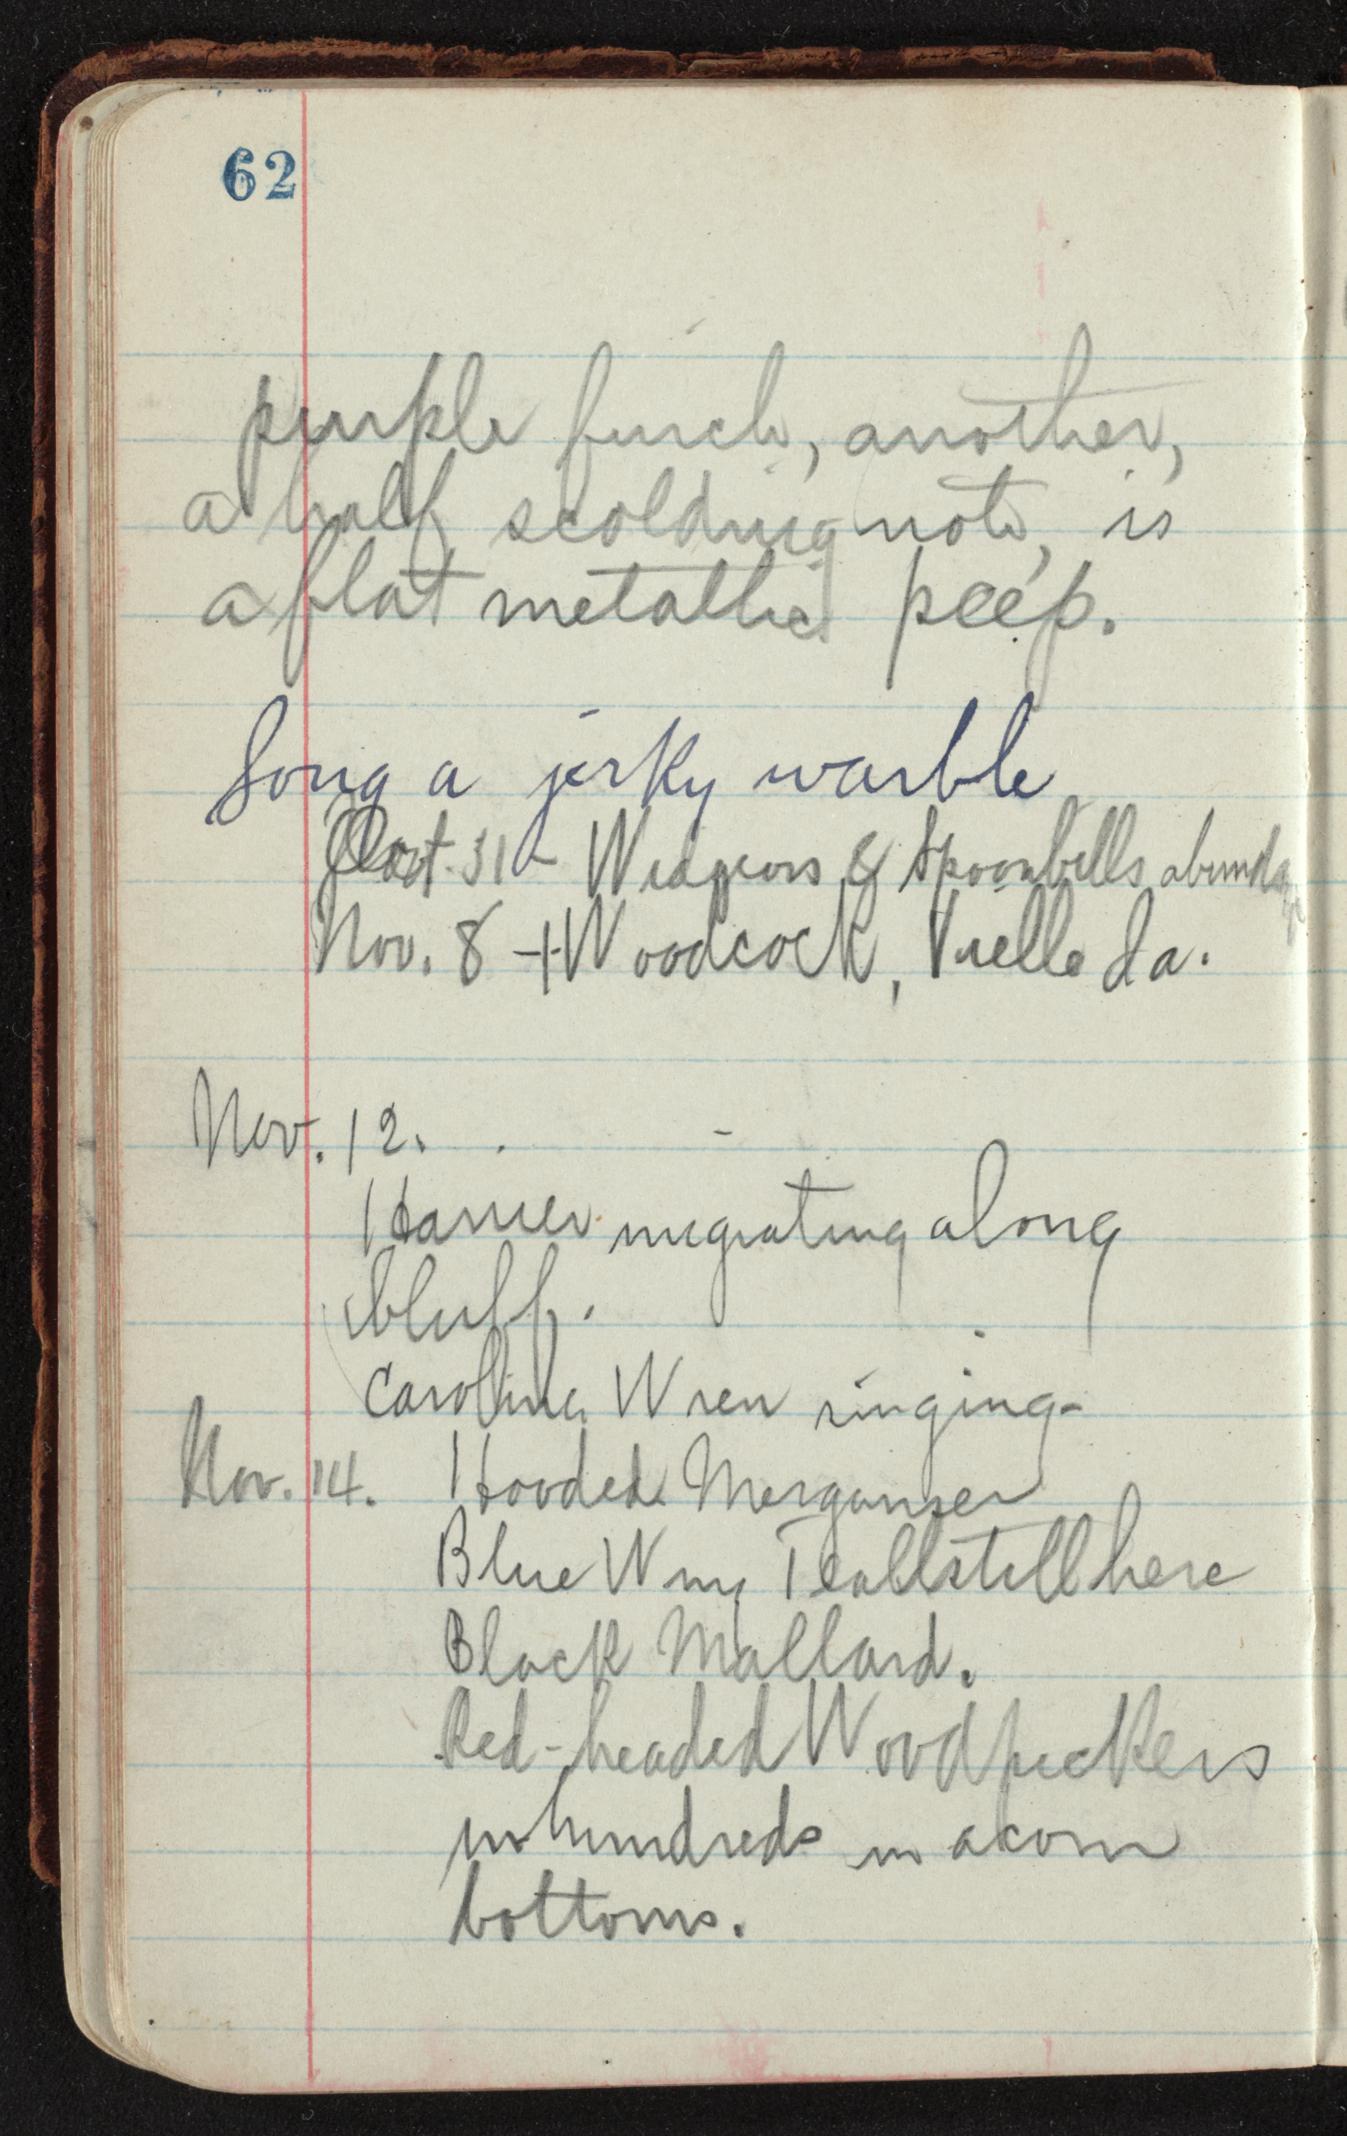 62
purple finch, another,
a half scolding note, is
a flat metallic peep.
Song a jerky warble
Oct 31 - Widgeons & Spoonbills abundant
Nov. 8 - Woodcock, Vielle Ia.
Nov. 12.
Harrier migrating along
bluff.
Carolina Wren singing-
Nov. 14. Hooded Merganser
Blue Wing Teal still here
Black Mallard.
Red-headed Woodpeckers
in hundreds in acorn
bottoms.